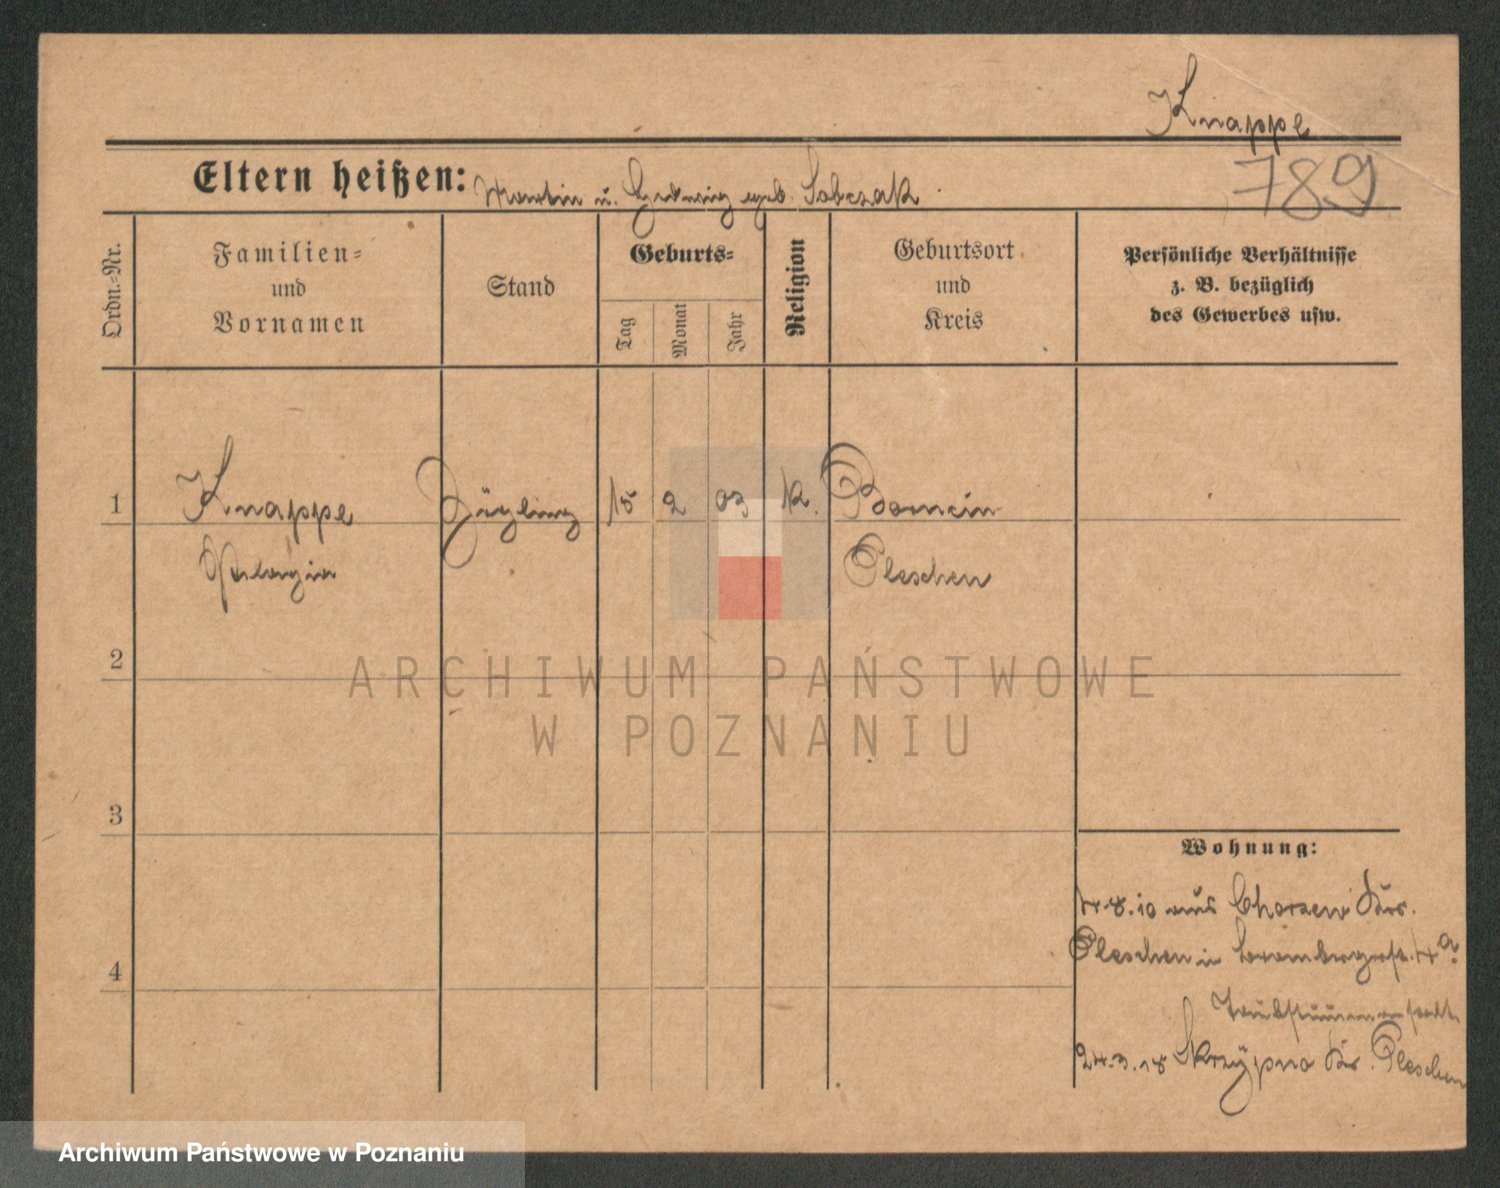 Knappe
789
Eltern heißen: Martin u. Hedwig geb. Sobczak
Ordn.-Nr.
Familien-
und
Vornamen
Stand
Geburts-
Tag
Monat
Jahr
Religion
Geburtsort
und
Kreis
Persönliche Verhältnisse
z. B. bezüglich
des Gewerbes usw.
1 Knappe Zögling 15 2 03 k.
Pelagia Pleschen
2
3
4
Wohnung:
4.8.10 aus Chorzew Krs.
Pleschen in Brombergerstr. 4a.
Taubstummenanstalt
24.3.18 Skrzypno Kr. Pleschen
ARCHIWUM PAŃSTWOWE
W POZNANIU
Archiwum Państwowe w Poznaniu